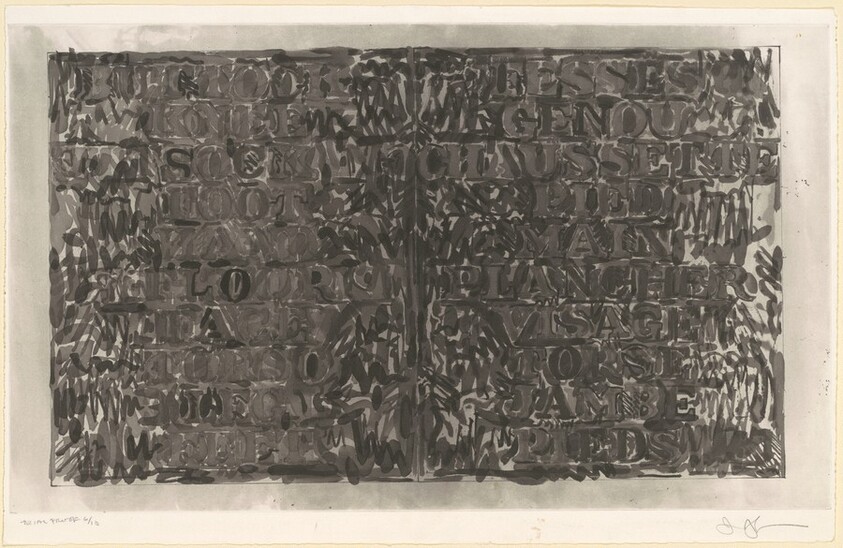 BUTTOCKS
KNEE
SOCK
FOOT
HAND
FLOOR
FACE
TORSO
LEG
FEET
FESSES
GENOU
CHAUSSETTE
PIED
MAIN
PLANCHER
VISAGE
TORSE
JAMBE
PIEDS
TRIAL PROOF 6/10